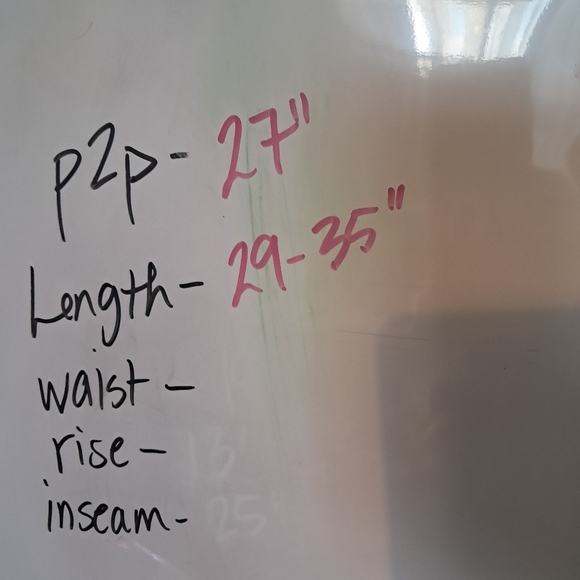 p2p- 27"
Length- 29-35"
waist -
rise - 13"
inseam- 25"